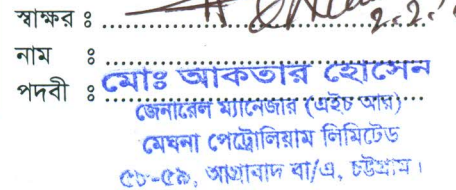 স্বাক্ষর ঃ
নাম ঃ
পদবী ঃ মোঃ আকতার হোসেন
জেনারেল ম্যানেজার (এইচ আর)
মেঘনা পেট্রোলিয়াম লিমিটেড
৫৮-৫৯, আগ্রাবাদ বা/এ, চট্টগ্রাম।